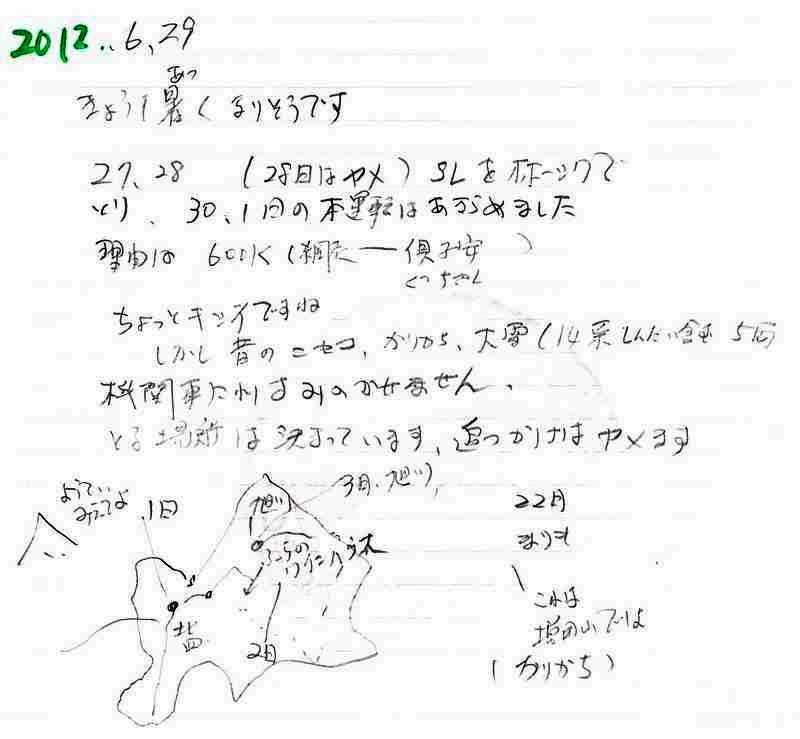 2012..6.29
あつ
きょうも暑くなりそうです
27、28 (28日はヤメ) SLをホーツクで
とり、30、1日の本運転はあきらめました
理由は 600K (網走―倶知安)
くっちゃん
ちょっとキツイですね
しかし昔のニセコ、かりかち、大雪(14系しんだい含む 5
機関車にれすみのかせません、
とる場所は決まっています、追っかけはヤメます
ようてい
みえてよ
1日
旭川
3日.旭川
ふらの
ワインハウス
2日
22日
まりも
これは
増田山では
(かりかち)